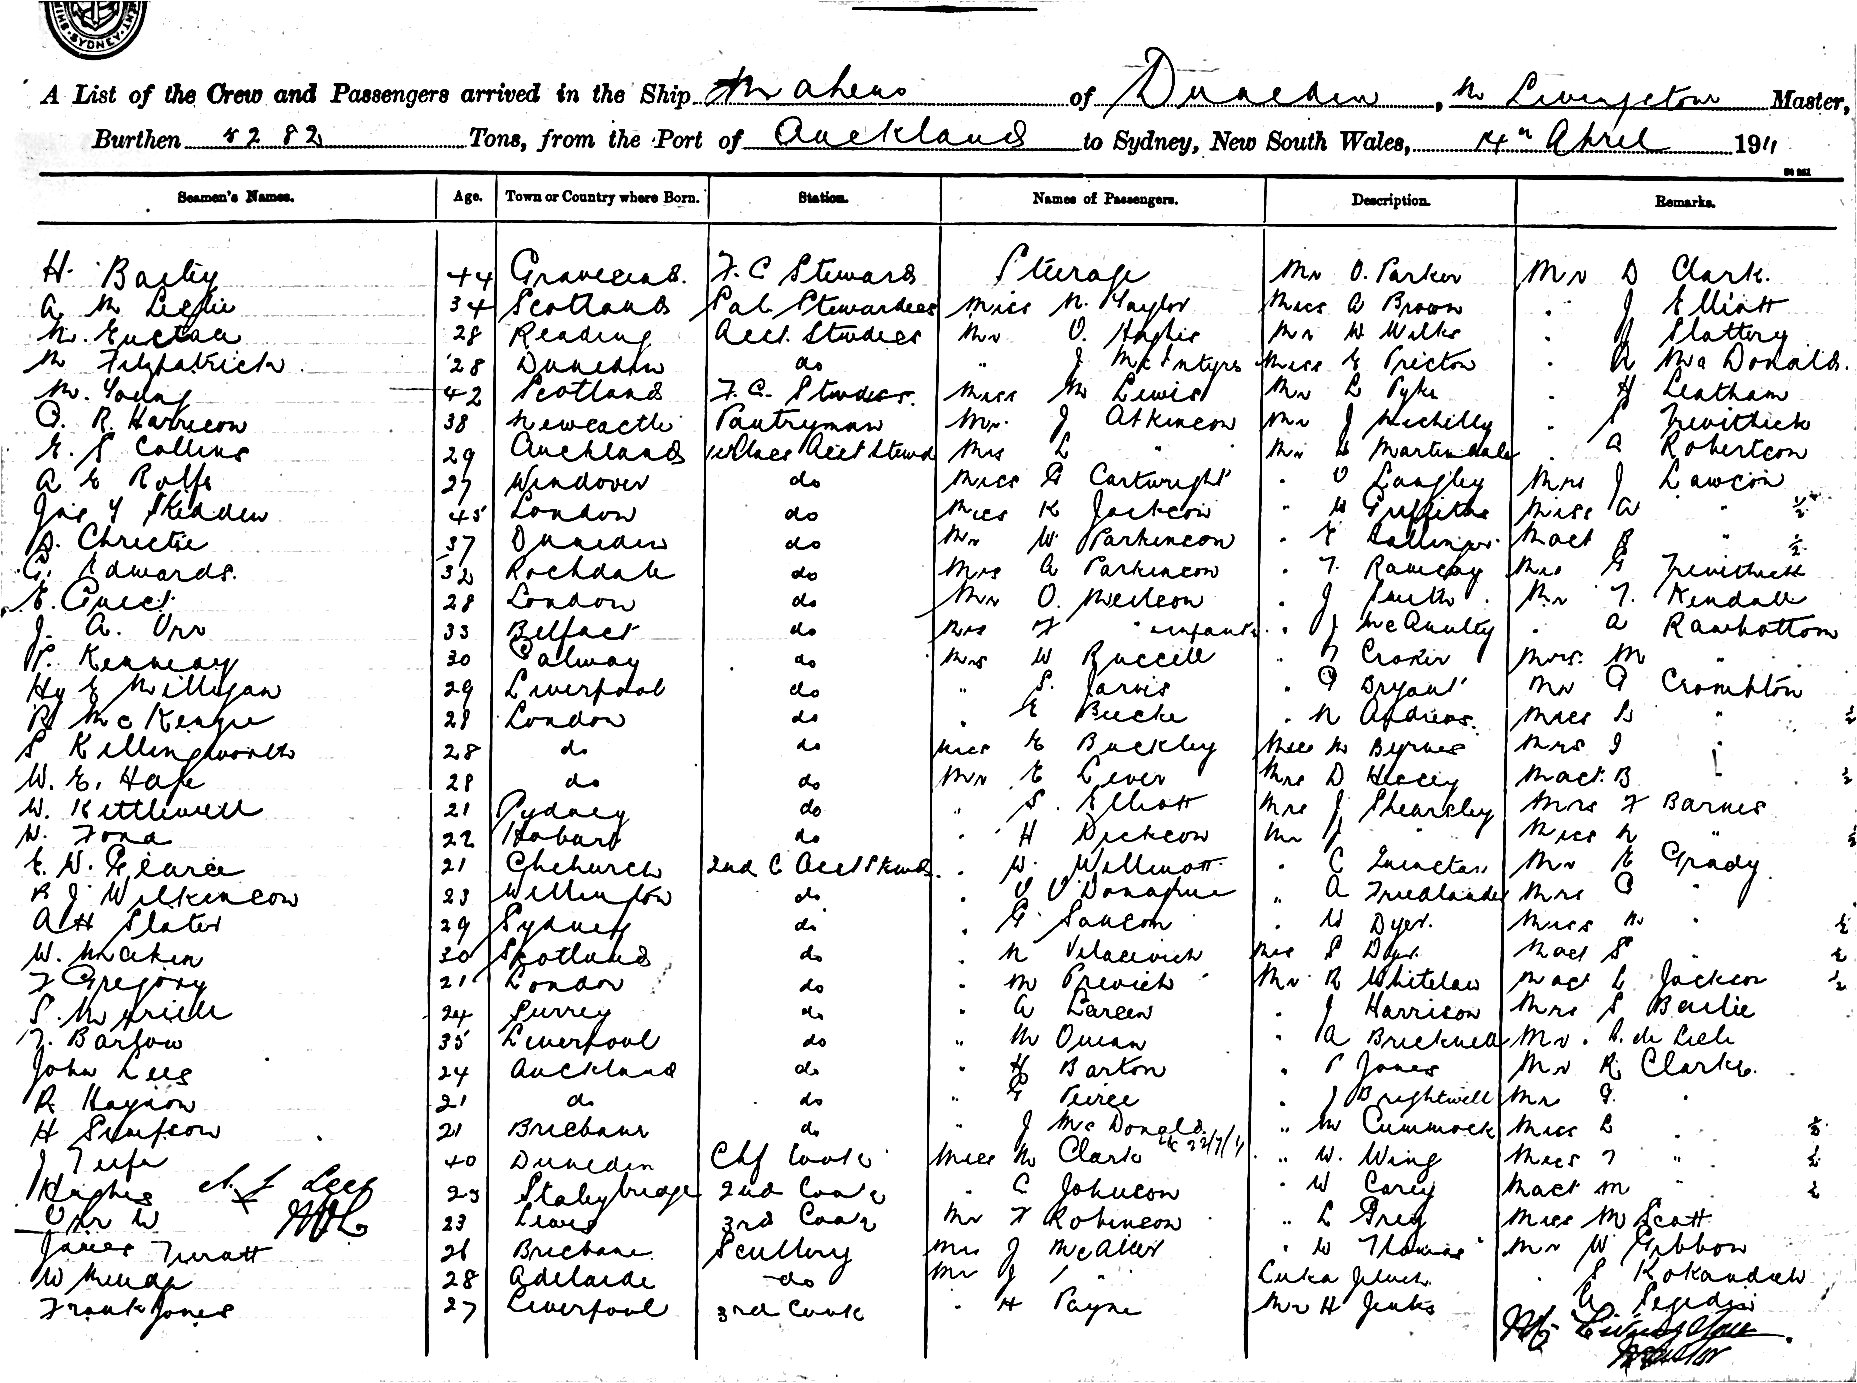 SYDNEY
A List of the Crew and Passengers arrived in the Ship Maheno of Dunedin, M Livingstone Master,
Burthen 5282 Tons, from the Port of Auckland to Sydney, New South Wales, 14th April 1911
Seamen's Names. Age. Town or Country where Born. Station. Names of Passengers. Description. Remarks.
H. Bailey 44 Gravesend. F.C Steward Steerage Mr O. Parker Mr D Clark.
A M Leslie 34 Scotland Sal. Stewardess Miss M. Taylor Miss A Brown . J Elliott
M. 28 Reading Asst. Stwdess Mr O. Hughes Mr W Wilks . J Slattery
M Fitzpatrick 28 Dunedin do " J McIntyre Miss E Preston . A McDonald.
M. Young 42 Scotland F.C. Stwdess. Miss M Lewis Mr L Pyke . H Leatham
O. R. Harrison 38 Newcastle Pantryman Mr. J Atkinson Mr J . S Trevithick
E. S Collins 29 Auckland Asst Stewd Mrs L " Mr L Martindale . A Robertson
A E Rolfe 27 Windover do Miss G Cartwright . O Langley Mrs J Lawson
Jas Y Skedden 45 London do Miss K Jackson " W Griffiths Miss A " ½
D. Christie 37 Dunedin do Mr W. Parkinson . E Mast B " ½
G. Edwards. 32 Rochdale do Mrs A Parkinson . T. Ramsay Mrs G Trevithick
E. Guest 28 London do Mr O. Neilson . J Smith . Mr T. Kendall
J. A. Orr 33 Belfast do Mrs F " infant . J McAnulty . A Rawbottom
P. Kennedy 30 Galway do Mrs W Russell " T Croker Mrs. M "
Hy E Milligan 29 Liverpool do " S. Jarvis . G Bryant Mr G Crombton
R McKenzie 28 London do . E Beeche . N Andrews. Miss B " ½
S Killingworth 28 do do Miss E Buckley Miss M Byrnes Mrs J "
W. E. Hafe 28 do do Mr E Lever Mrs D Hersey Mast. B ½
W. Kettlewell 21 Sydney do " S. Elliott Mrs J Shearsley Mrs F Barnes
W. Ford 22 Hobart do . H Dickson Mr J " Miss N " ½
E. W. Pearce 21 Chchurch 2nd C Asst Stewd . W. Willmott . C Mr E Grady
R J Wilkinson 23 Wellington do . O O'Donaghue " A Friedlander Mrs C "
A H Slater 29 Sydney do . G. Saucon . W Dyer. Miss N " ½
W. Meakin 30 Scotland do . N Mrs S Dyer. Mast S " ½
F Gregory 21 London do " M Previch Mr R Whitelaw Mast L Jackson ½
S. M 24 Surrey do . A Larsen . J Harrison Mrs S Bailie
T. Barlow 35 Liverpool do " M Quinn " A Bricknell Mr. A. de Lisle
John Lees 24 Auckland do " H Barton . P Jones Mr R Clarke.
R Haydon 21 do do " G Peirce . J Brightwell Mr G. "
H Simpson 21 Brisbane do " J McDonald " M Cummock Miss L " ½
J Telfer 40 Dunedin Chf Cook Miss M Clark 22/7/4 " W. Wing Miss T " ½
Hughes 23 Staleybridge 2nd Cook . C Johnson " W Corey Mast M " ½
Orr W 23 Lewis 3rd Cook Mr F Robinson " L Grey Miss M Scott
James 26 Brisbane Scullery Mrs J McAlister " W Thomas Mr W Gibbon
W 28 Adelaide do Mr J " . S
Frank Jones 27 Liverpool 3rd Cook . H Payne Mr H Jenks
M Livingstone
Master